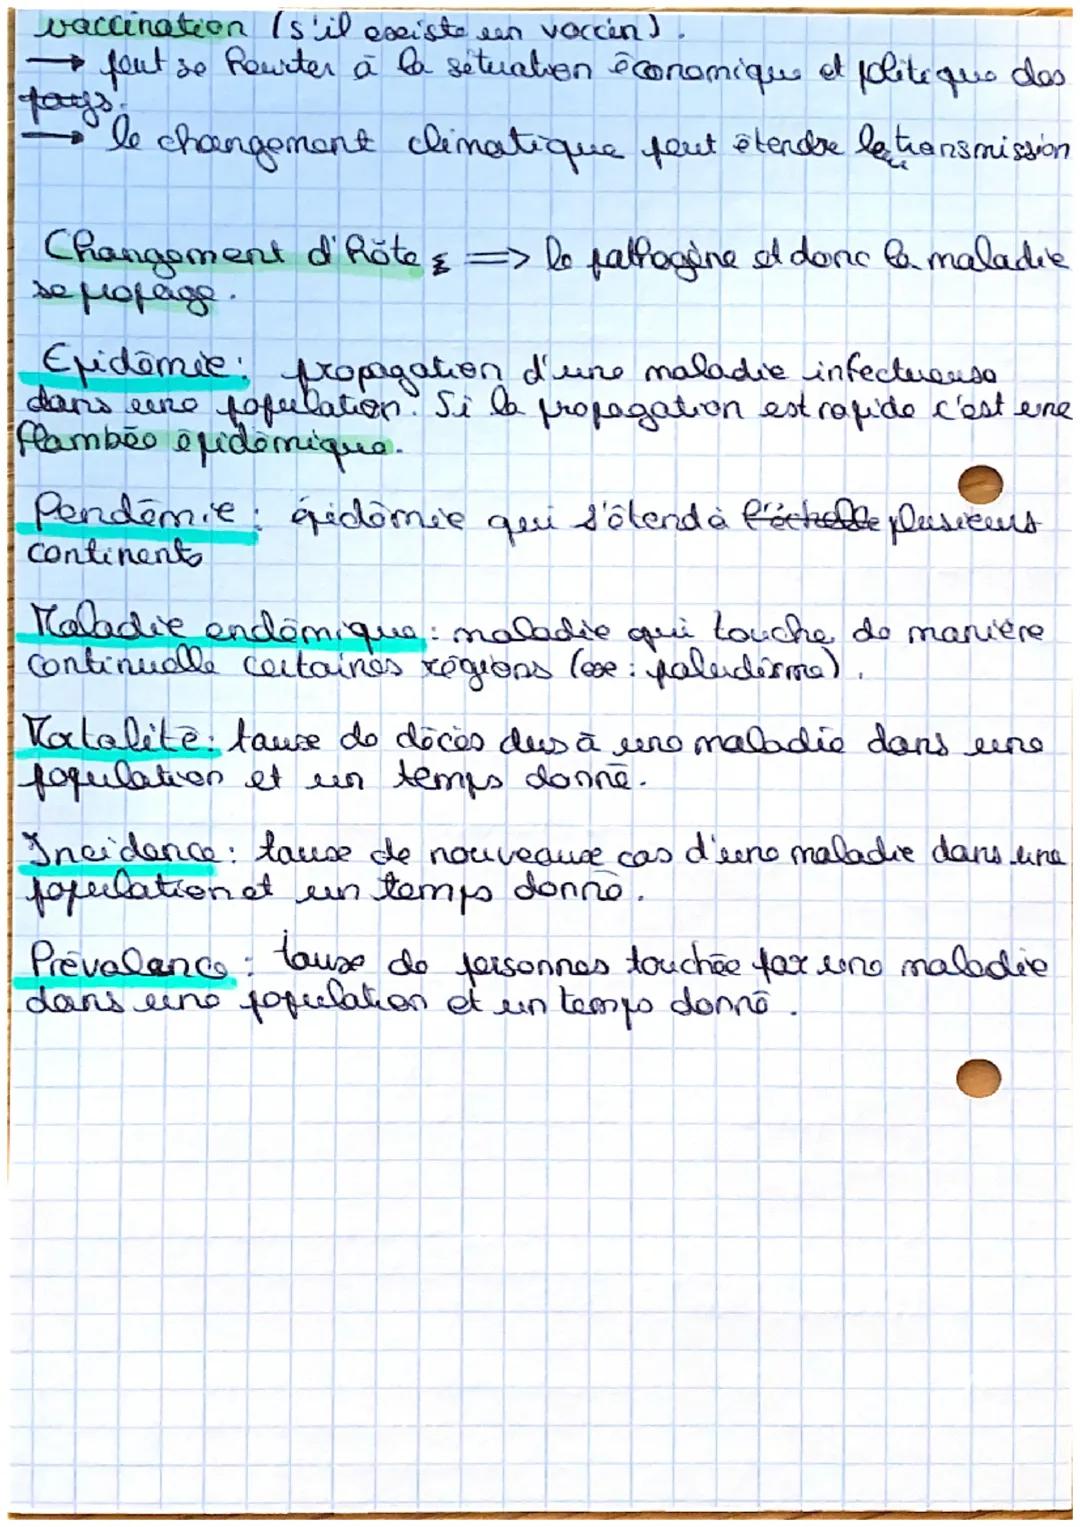 vaccination (s'il existe un vaccin).
→ peut se heurter à la situation économique et politique des
pays.
→ le changement climatique peut étendre la transmission
Changement d'hôte => le pathogène et donc la maladie
se propage.
Epidémie : propagation d'une maladie infectueuse
dans une population. Si la propagation est rapide c'est une
flambée épidémique.
Pandémie : épidémie qui s'étend à l'échelle plusieurs
continents
Maladie endémique : maladie qui touche de manière
continuelle certaines régions (ex : paludisme).
Mortalité : taux de décès dus à une maladie dans une
population et un temps donné.
Incidence : taux de nouveaux cas d'une maladie dans une
population et un temps donné.
Prévalence : taux de personnes touchée par une maladie
dans une population et un temps donné.